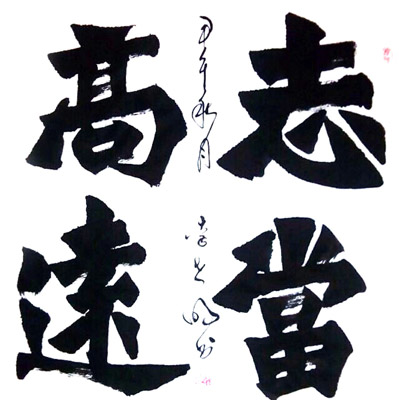 志當
髙遠
甲午秋月